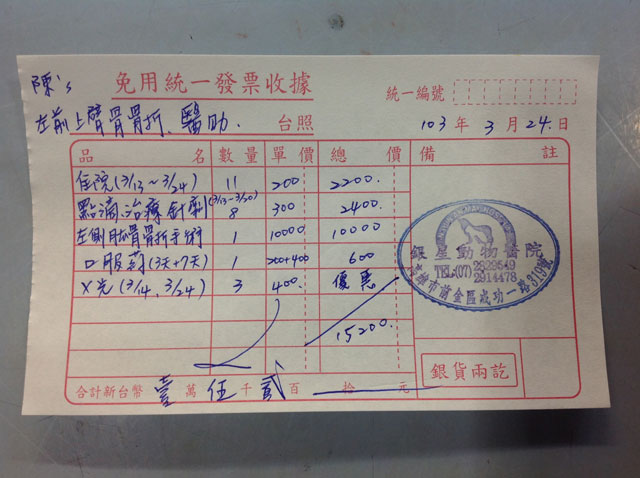 陳's 免用統一發票收據 統一編號
左前上臂骨骨折、醫助. 台照 103 年 3 月 24. 日
品名 數量 單價 總價 備註
住院(3/13~3/24) 11 200 2200.
點滴.治療針劑(3/13~3/20) 8 300 2400.
左側肱骨骨折手術 1 10000 10000
口服葯(3天+7天) 1 200+400 600
X光(3/14, 3/24) 3 400. 優惠
15200.
銀星動物醫院
TEL:(07)
2914478
高雄市前金區成功一路319號
銀貨兩訖
合計新台幣 壹 萬 伍 千 貳 百 拾 元